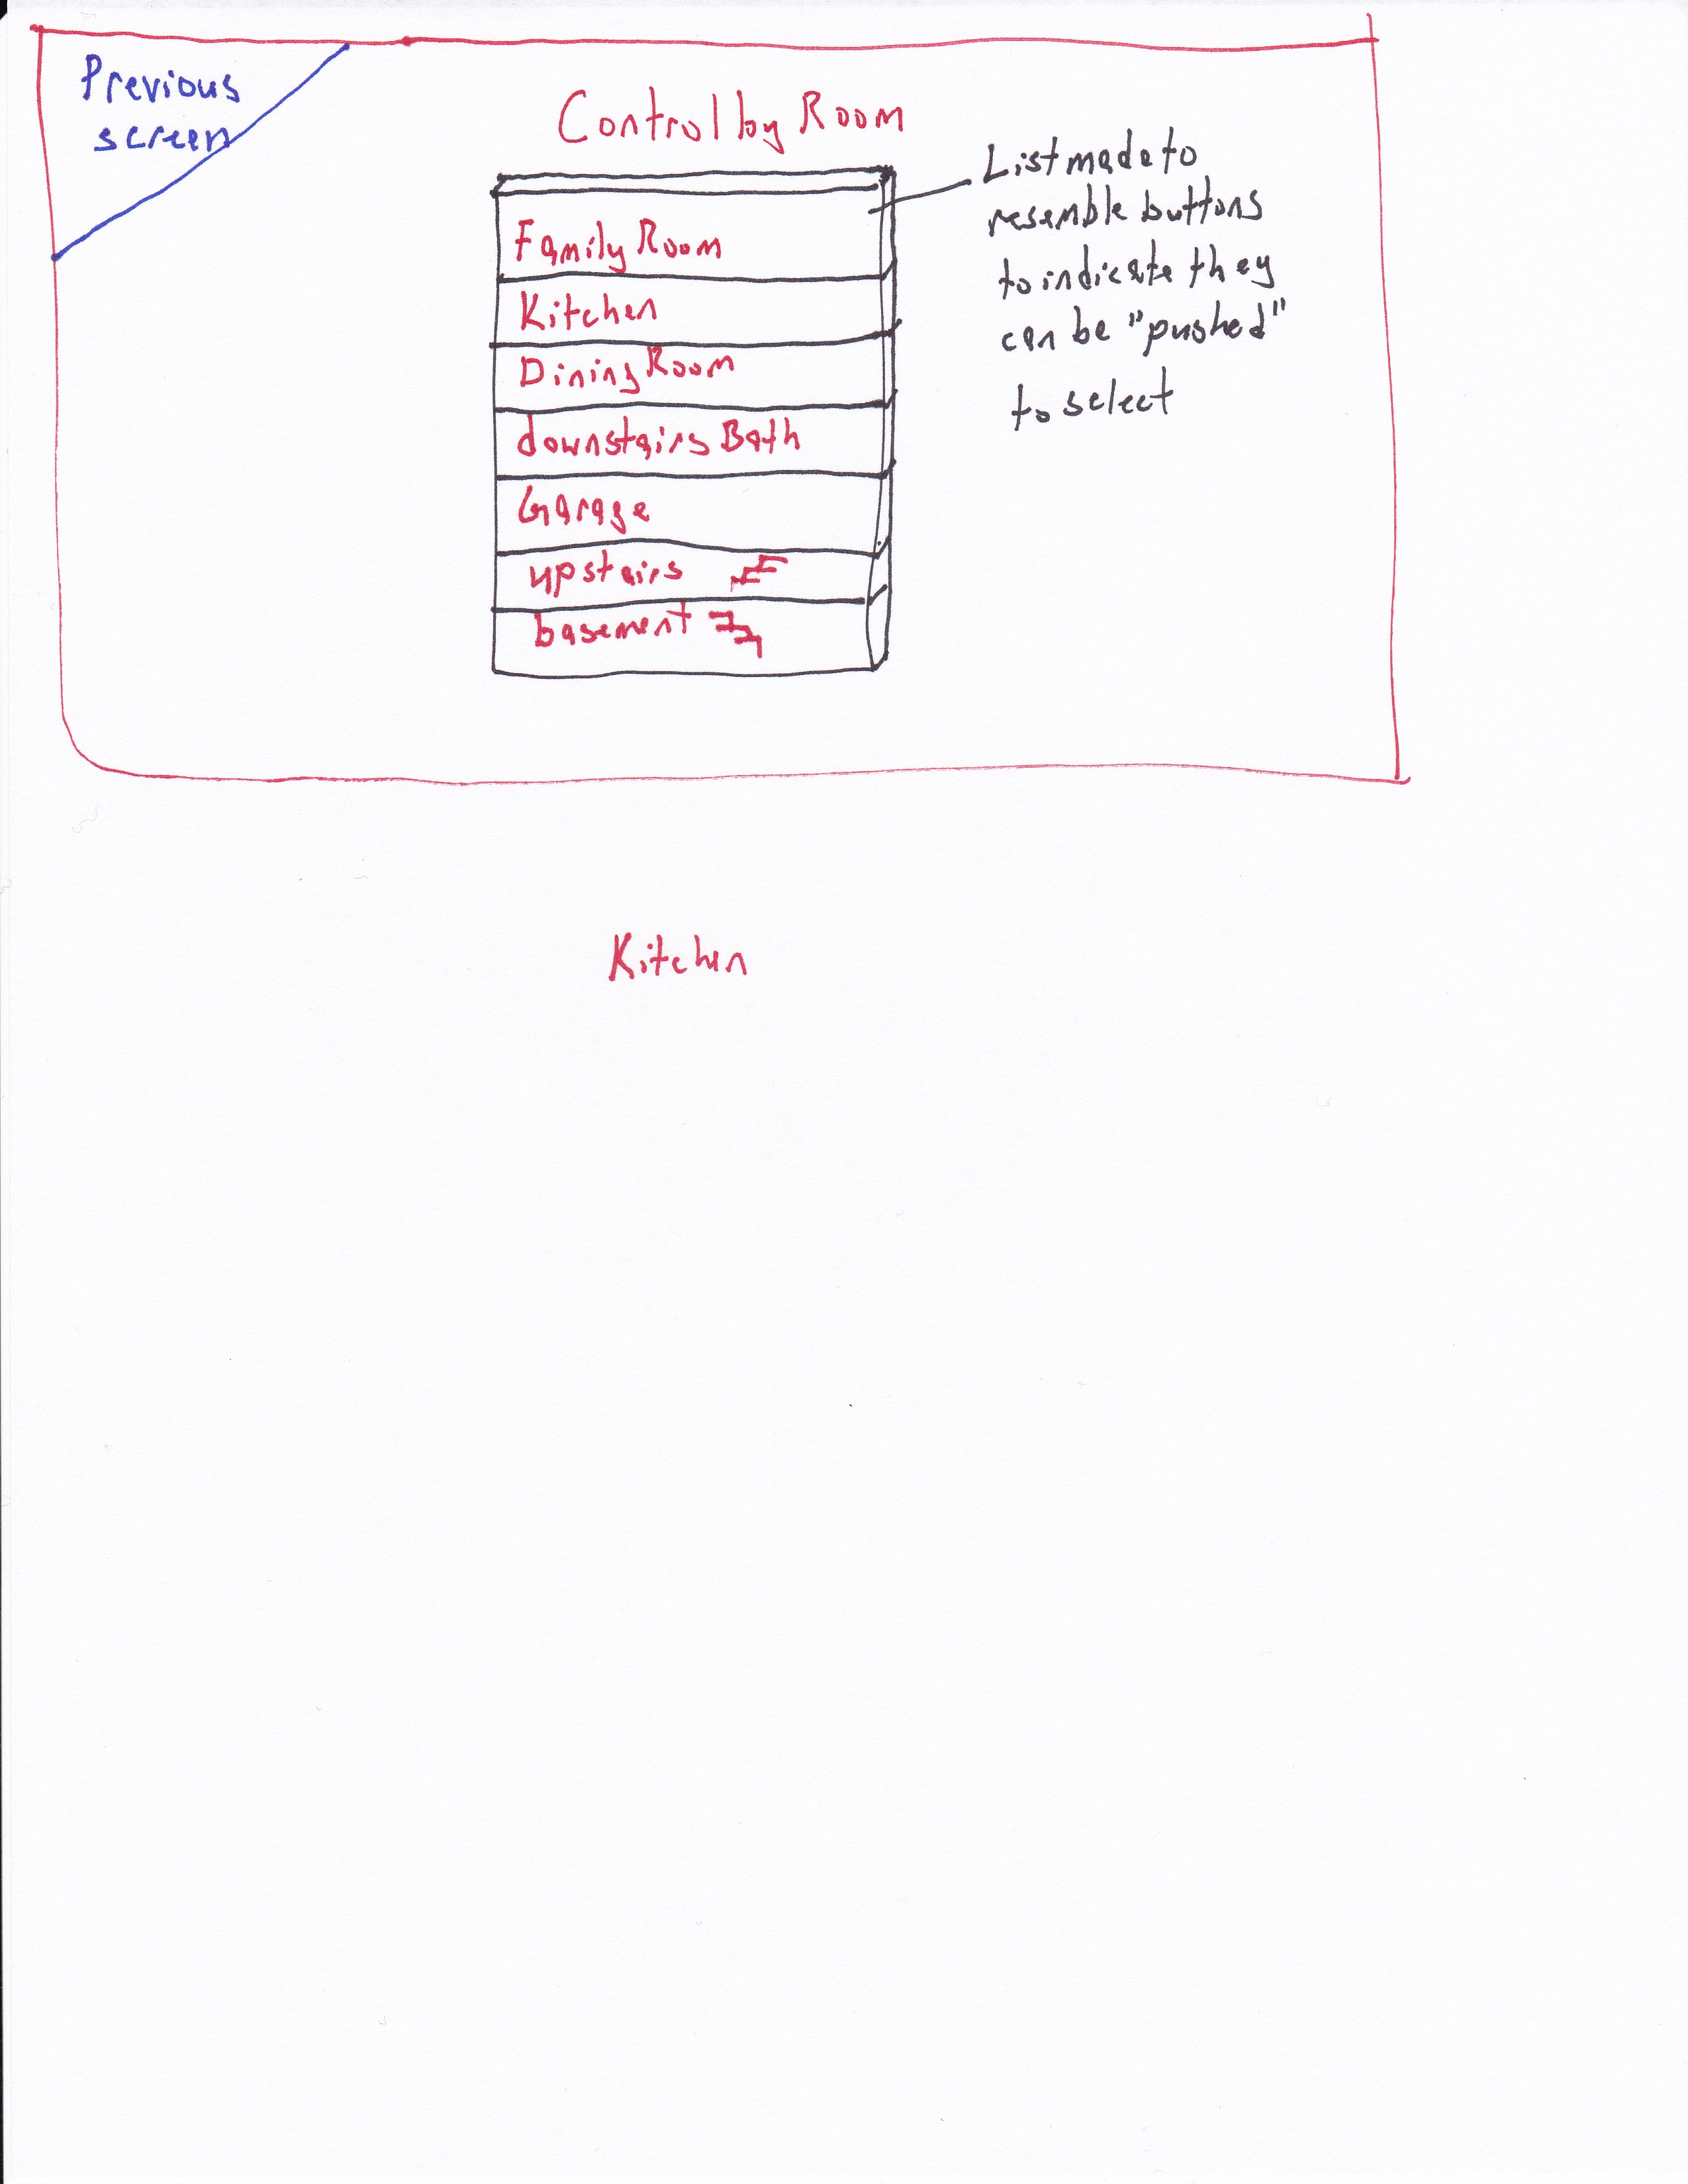 Previous
screen
Control by Room
Family Room
Kitchen
Dining Room
downstairs Bath
Garage
upstairs
basement
List made to
resemble buttons
to indicate they
can be "pushed"
to select
Kitchen